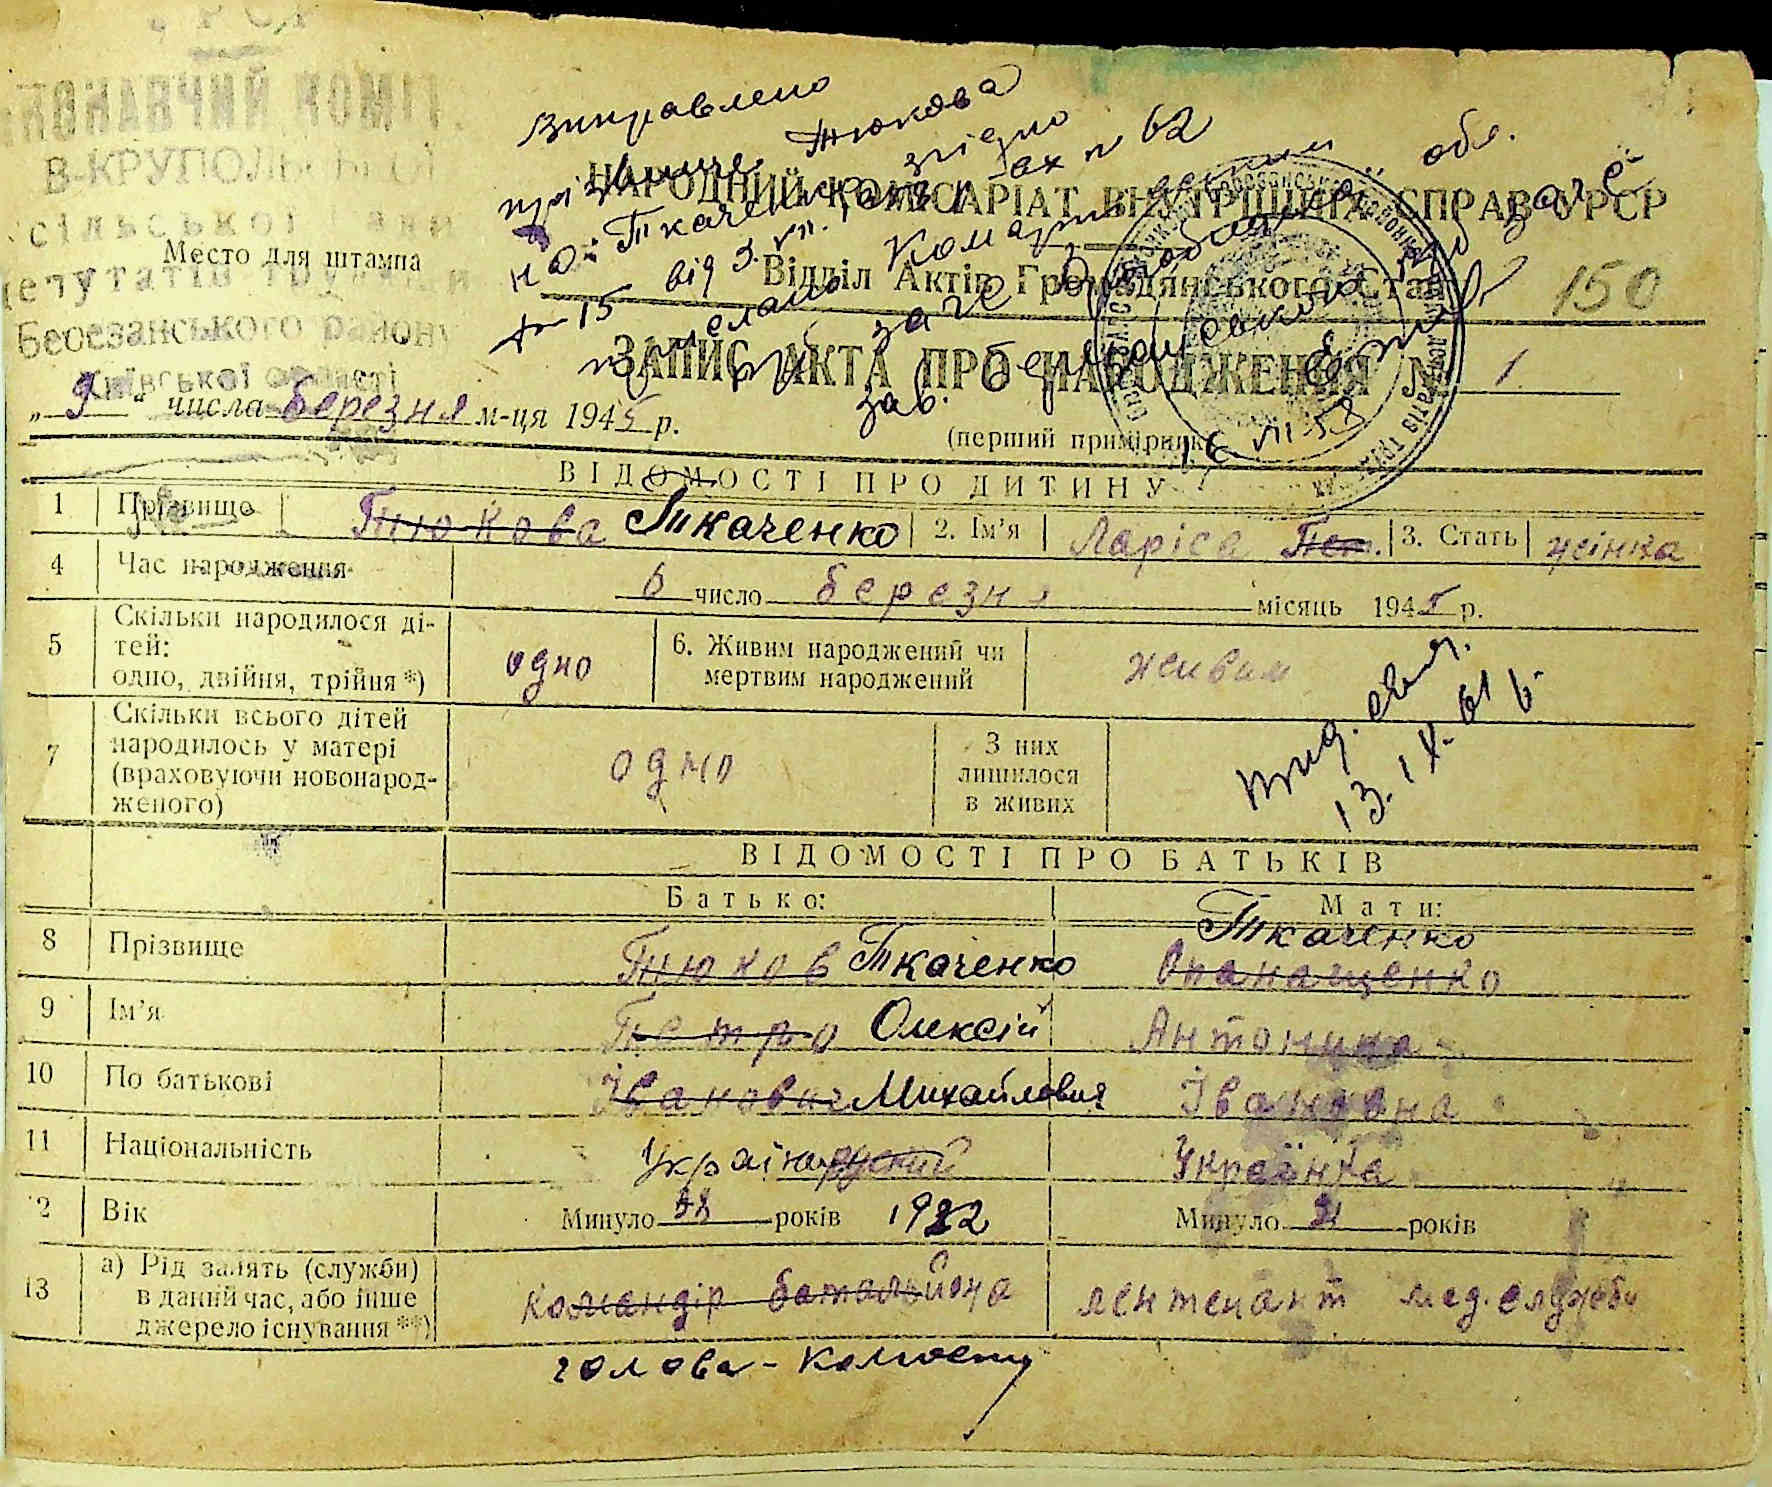 В-КРУПОЛЬ
сільської
Место для штампа
депутатів
Березанського району
Київської області
Виправлено
прізвище Тюкова
на: Ткаченко згідно
№ 62
від
зав.
VII-58
НАРОДНИЙ КОМІСАРІАТ ВНУТРІШНІХ СПРАВ УРСР
Відділ Актів Громадянського Стану
150
ЗАПИС АКТА ПРО НАРОДЖЕННЯ № 1
„9“ числа березня м-ця 1945 р.
(перший примірник)
ВІДОМОСТІ ПРО ДИТИНУ
1 Прізвище Тюкова Ткаченко 2. Ім’я Ларіса Пет. 3. Стать жінка
4 Час народження 6 число березня місяць 1945 р.
5 Скільки народилося ді-
тей:
одно, двійня, трійня *) одно 6. Живим народжений чи
мертвим народжений живим
7 Скільки всього дітей
народилось у матері
(враховуючи новонарод-
женого) одно З них
лишилося
в живих
13.IX.61
ВІДОМОСТІ ПРО БАТЬКІВ
Батько: Мати:
8 Прізвище Тюков Ткаченко Ткаченко Опанащенко
9 Ім’я Петро Олексій Антонина
10 По батькові Іванович Михайлович Івановна
11 Національність Україн руский Українка
12 Вік Минуло років 1922 Минуло 21 років
13 а) Рід занять (служби)
в даний час, або інше
джерело існування **) командір батальйона лентенант мед. служби
голова-колгоспу